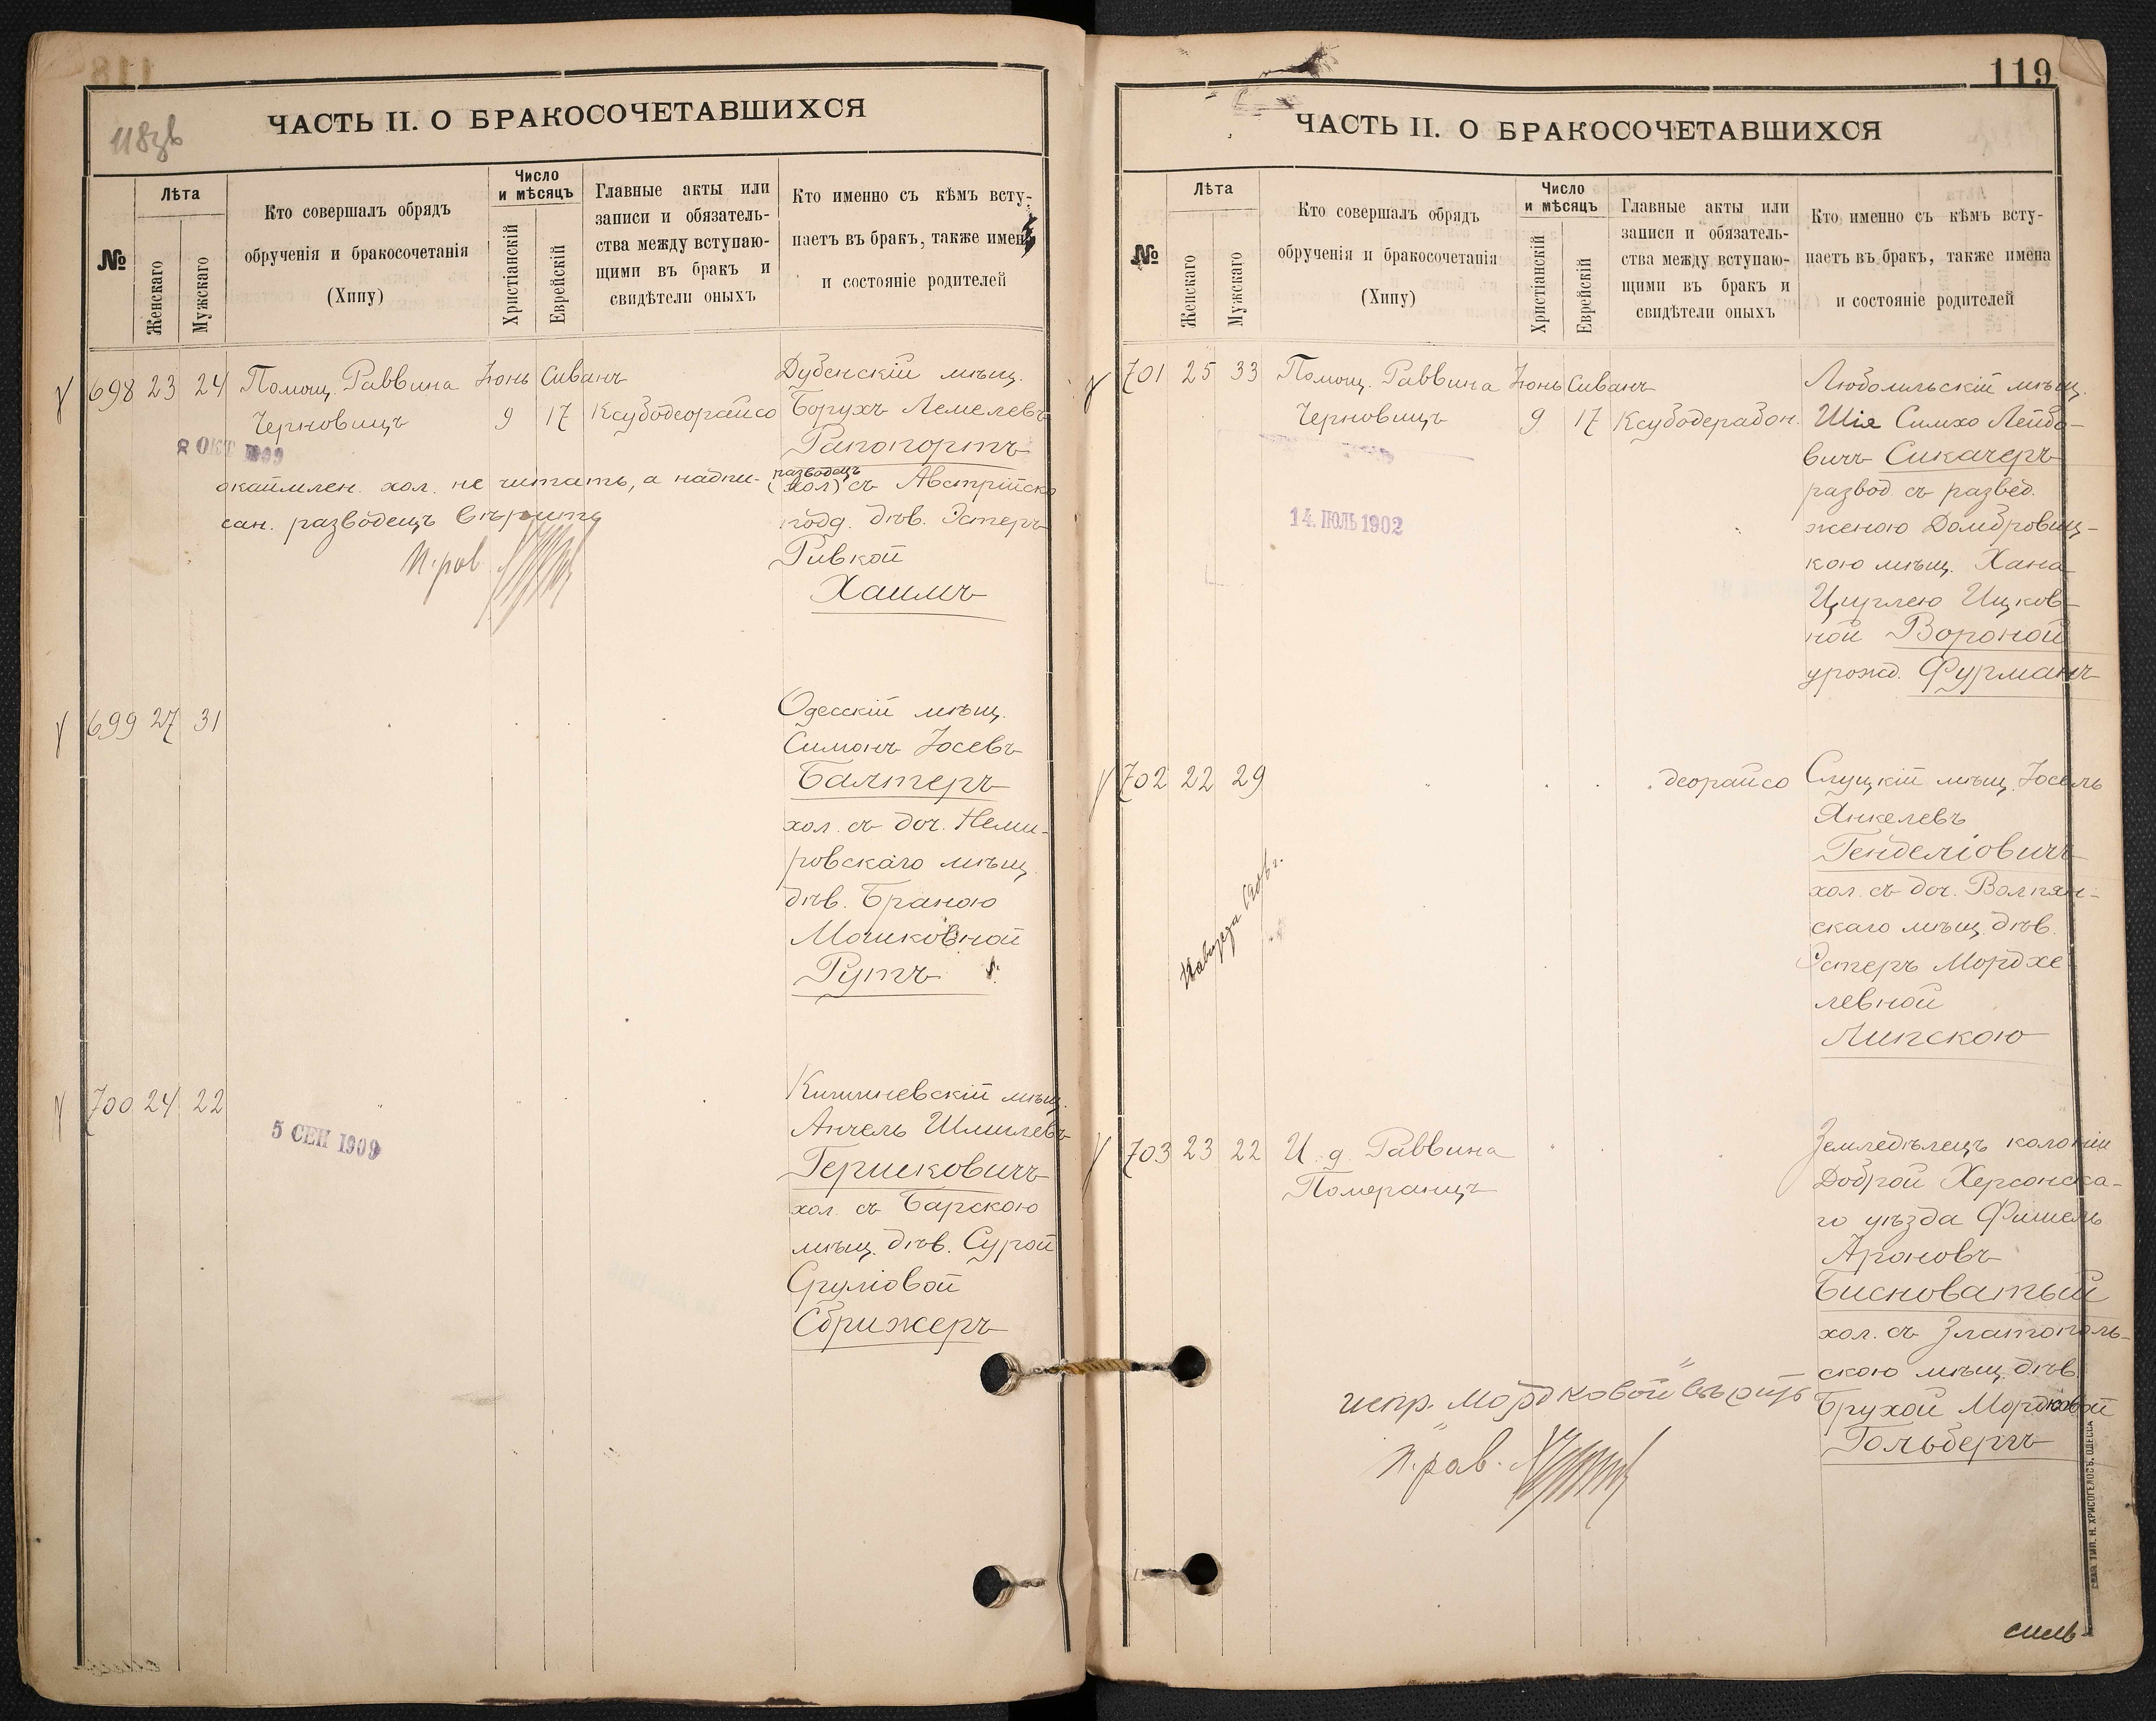 118об
ЧАСТЬ II. О БРАКОСОЧЕТАВШИХСЯ
№
Лѣта
Женскаго
Мужскаго
Кто совершалъ обрядъ
обрученія и бракосочетанія
(Хипу)
Число
и мѣсяцъ
Христіанскій
Еврейскій
Главные акты или
записи и обязатель-
ства между вступаю-
щими въ бракъ и
свидѣтели оныхъ
Кто именно съ кѣмъ всту-
паетъ въ бракъ, также имена
и состояніе родителей
698 23 24 Помощ. Раввина Іюнь Сиванъ
Черновицъ 9 17 Ксубодеорайсо
8 ОКТ 1909
Дубенскій мѣщ.
Борухъ Лемелевъ
Рапопортъ
разводецъ
(хол) съ Австрійско
подд. дѣв. Эстеръ
Ривкой
Хаимъ
окаймлен. хол. не читать, а надпи-
сан. разводецъ вѣрить
п. рав.
699 27 31
Одесскій мѣщ.
Симонъ Іосевъ
Балтеръ
хол. съ доч. Неми-
ровскаго мѣщ.
дѣв. Браною
Мошковной
Рутъ
700 24 22
5 СЕН 1909
Кишиневскій мѣщ.
Анчель Шмилевъ
Гершковичъ
хол. съ Барскою
мѣщ. дѣв. Сурой
Сруліовой
Сбрижеръ
119
ЧАСТЬ II. О БРАКОСОЧЕТАВШИХСЯ
№
Лѣта
Женскаго
Мужскаго
Кто совершалъ обрядъ
обрученія и бракосочетанія
(Хипу)
Число
и мѣсяцъ
Христіанскій
Еврейскій
Главные акты или
записи и обязатель-
ства между вступаю-
щими въ бракъ и
свидѣтели оныхъ
Кто именно съ кѣмъ всту-
паетъ въ бракъ, также имена
и состояніе родителей
701 25 33 Помощ. Раввина Іюнь Сиванъ
Черновицъ 9 17 Ксубодерабон.
14 ІЮЛЬ 1902
Любомльскій мѣщ.
Шія Симхо Лейбо-
вичъ Сикачеръ
развод. съ развед.
женою Домбровиц-
кою мѣщ. Хана
Цирлею Ицков-
ной Вороной
урожд. Фурманъ
702 22 29 деорайсо
Слуцкій мѣщ. Іосель
Янкелевъ
Генделіовичъ
хол. съ доч. Волпян-
скаго мѣщ. дѣв.
Эстеръ Мордхе
левной
Липскою
703 23 22 И. д. Раввина
Померанцъ
Земледѣлецъ колоніи
Доброй Херсонска-
го уѣзда Фишель
Ароновъ
Бисноватый
хол. съ Златополь-
скою мѣщ. дѣв.
Брухой Мордковой
Гольбергъ
испр. „Мордковой" вѣрить
п. рав.
СЛАВ. ТИП. Н. ХРИСОГЕЛОСЪ. ОДЕССА